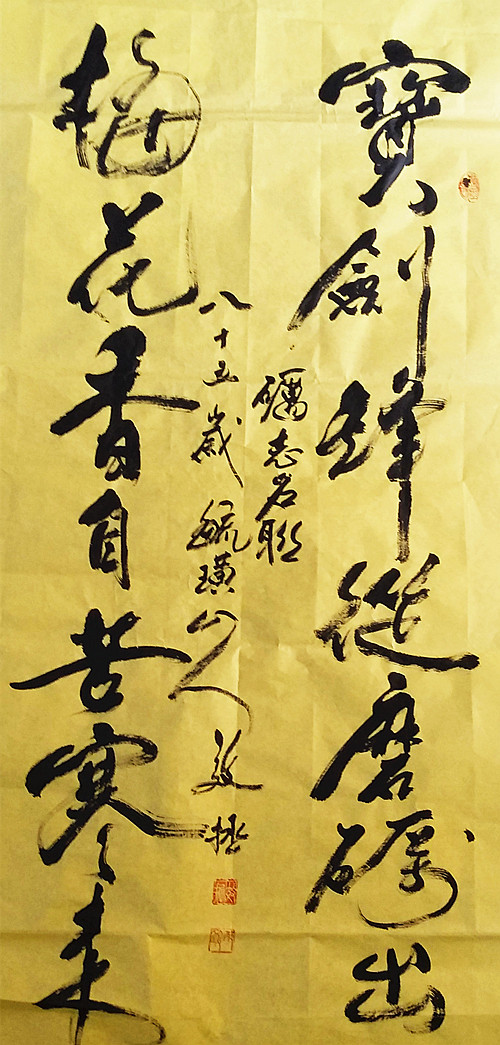 寶劍鋒從磨礪出
礪志名聯
八十五歲毓璜山人
梅花香自苦寒來